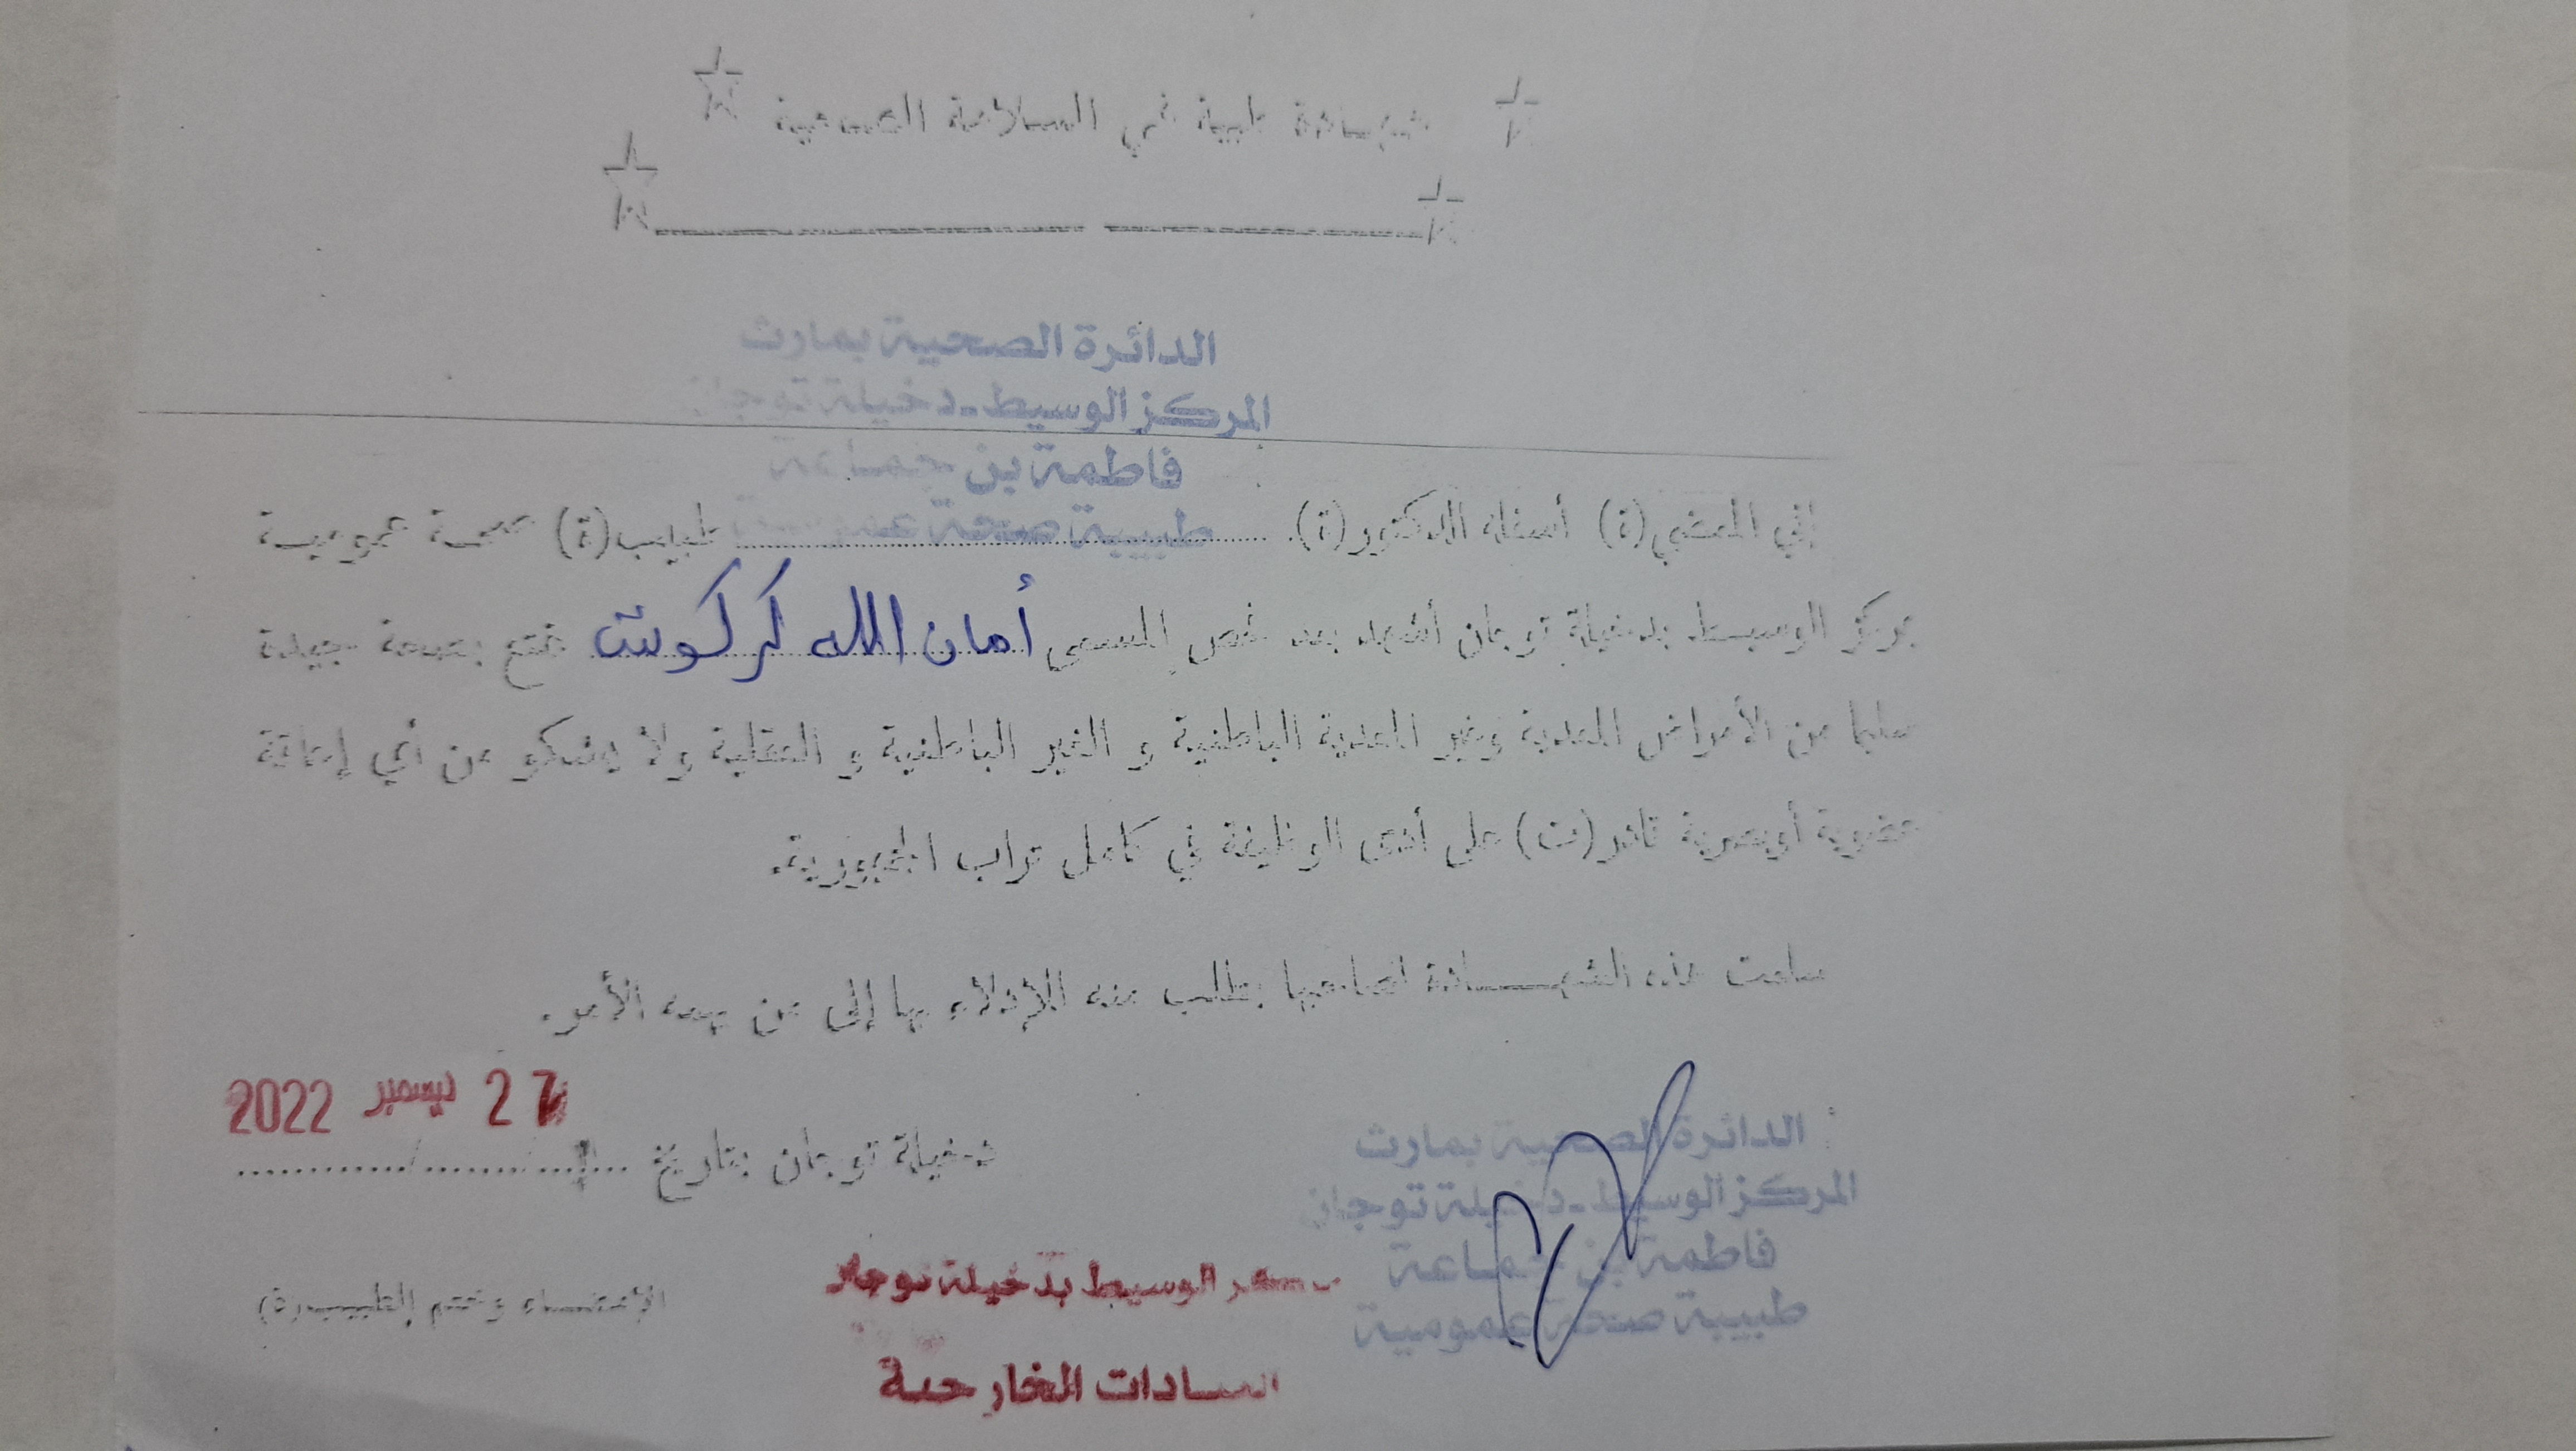 شهادة طبية في السلامة الصحية
الدائرة الصحية بمارث
المركز الوسيط-دخيلة توجان
فاطمة بن جماعة
طبيبة صحة عمومية
إني الممضي(ة) أسفله الدكتور(ة). طبيب(ة) صحة عمومية
بمركز الوسيط بدخيلة توجان أشهد بعد فحص المسمى أمان الله كركوش يتمتع بصحة جيدة
سليما من الأمراض المعدية وغير المعدية الباطنية و الغير الباطنية و العقلية ولا يشكو من أي إعاقة
عضوية أوبصرية قادر(ت) على أدى الوظيفة في كامل تراب الجمهورية.
سلمت هذه الشهادة لصاحبها بطلب منه للإدلاء بها إلى من يهمه الأمر.
27 ديسمبر 2022
دخيلة توجان بتاريخ ..../......../............
الدائرة الصحية بمارث
المركز الوسيط-دخيلة توجان
فاطمة بن جماعة
طبيبة صحة عمومية
الإمضاء وختم الطبيب(ة)
الوسيط بدخيلة توجان
الخارجية